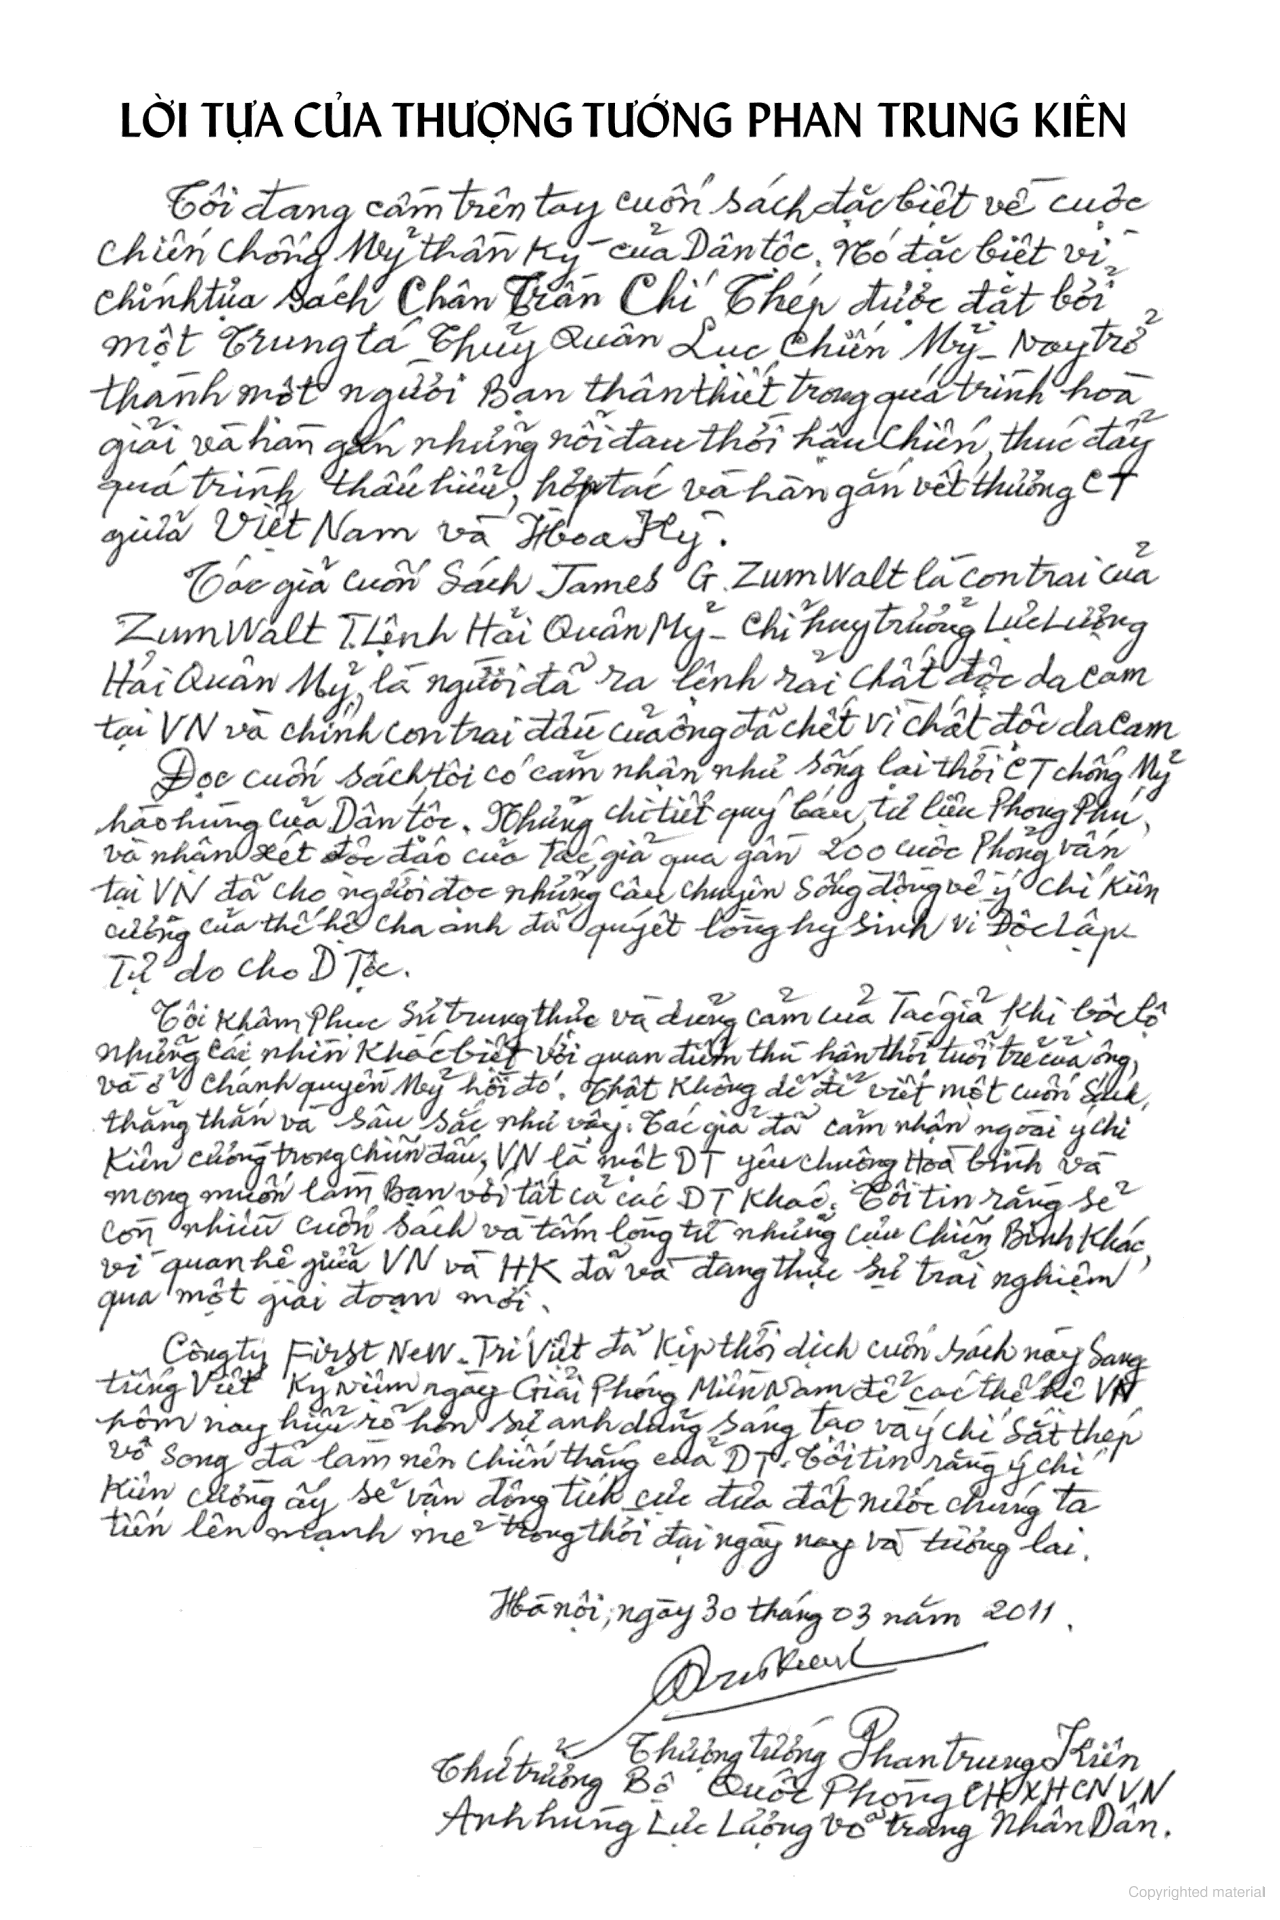 LỜI TỰA CỦA THƯỢNG TƯỚNG PHAN TRUNG KIÊN
Tôi đang cầm trên tay cuốn sách đặc biệt về cuộc
chiến chống Mỹ thần kỳ của Dân tộc. Nó đặc biệt vì
chính tựa sách Chân Trần Chí Thép được đặt bởi
một Trung tá Thuỷ Quân Lục Chiến Mỹ - Nay trở
thành một người Bạn thân thiết trong quá trình hoà
giải và hàn gắn những nỗi đau thời hậu chiến, thúc đẩy
quá trình thấu hiểu, hợp tác và hàn gắn vết thương CT
giữa Việt Nam và Hoa Kỳ.
Tác giả cuốn sách James G. ZumWalt là con trai của
ZumWalt T.Lệnh Hải Quân Mỹ - Chỉ huy trưởng Lực Lượng
Hải Quân Mỹ, là người đã ra lệnh rải chất độc da cam
tại VN và chính con trai đầu của ông đã chết vì chất độc da cam
Đọc cuốn sách, tôi có cảm nhận như sống lại thời CT chống Mỹ
hào hùng của Dân tộc. Những chi tiết quý báu, tư liệu Phong Phú,
và nhận xét độc đáo của Tác giả qua gần 200 cuộc Phỏng vấn
tại VN đã cho người đọc những câu chuyện sống động về ý chí Kiên
cường của thế hệ cha anh đã quyết lòng hy sinh vì Độc Lập
Tự do cho D Tộc.
Tôi Khâm Phục Sự trung thực và dũng cảm của Tác giả Khi bộc lộ
những cái nhìn Khác biệt với quan điểm thù hận thời tuổi trẻ của ông,
và ở Chánh quyền Mỹ hồi đó. Thật Không dễ để viết một cuốn Sách,
thẳng thắn và sâu sắc như vậy. Tác giả đã cảm nhận ngoài ý chí
Kiên cường trong chiến đấu, VN là một DT yêu chuộng Hoà bình và
mong muốn làm Bạn với tất cả các DT Khác. Tôi tin rằng sẽ
còn nhiều cuốn sách và tấm lòng từ những Cựu Chiến Binh Khác,
vì quan hệ giữa VN và HK đã và đang thực sự trải nghiệm
qua một giai đoạn mới.
Công ty First New - Trí Việt đã Kịp thời dịch cuốn sách này Sang
tiếng Việt Kỷ niệm ngày Giải Phóng Miền Nam để các thế hệ VN
hôm nay hiểu rõ hơn sự anh dũng sáng tạo và ý chí Sắt thép
vô song đã làm nên chiến thắng của DT. Tôi tin rằng ý chí
Kiên cường ấy sẽ vận động tích cực đưa đất nước chúng ta
tiến lên mạnh mẽ trong thời đại ngày nay và tương lai.
Hà nội, ngày 30 tháng 03 năm 2011.
Thượng tướng Phan trung Kiên
Thứ trưởng Bộ Quốc Phòng CHXHCNVN
Anh hùng Lực Lượng Võ trang Nhân Dân.
Copyrighted material